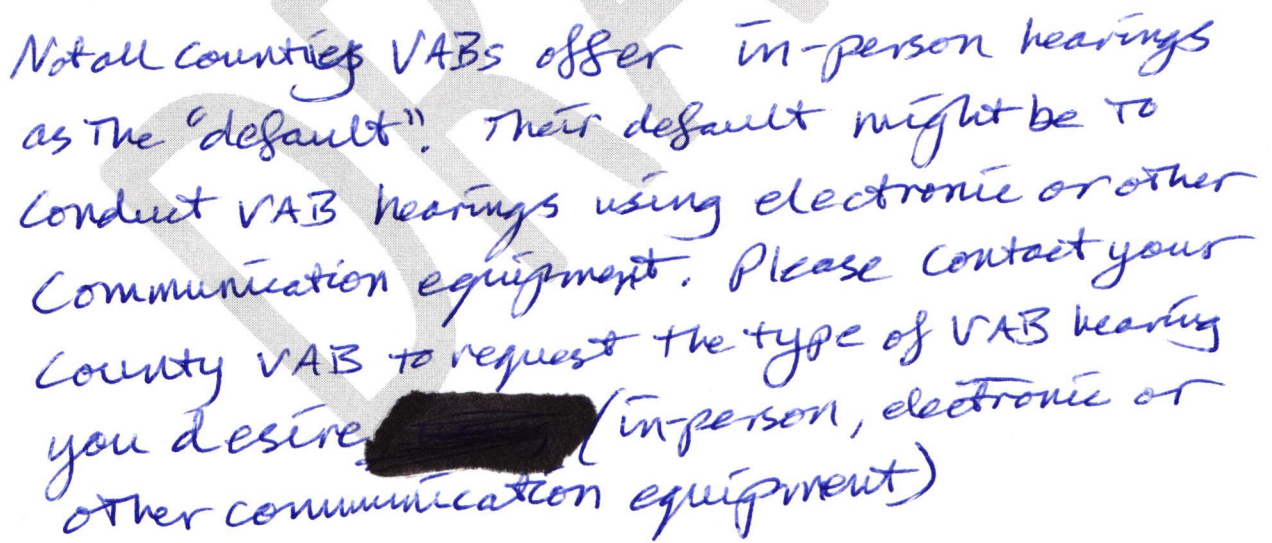 Not all counties VABs offer in-person hearings
as The "default". Their default might be to
conduct VAB hearings using electronic or other
Communication equipment. Please contact your
County VAB to request the type of VAB hearing
you desire (in-person, electronic or
other communication equipment)